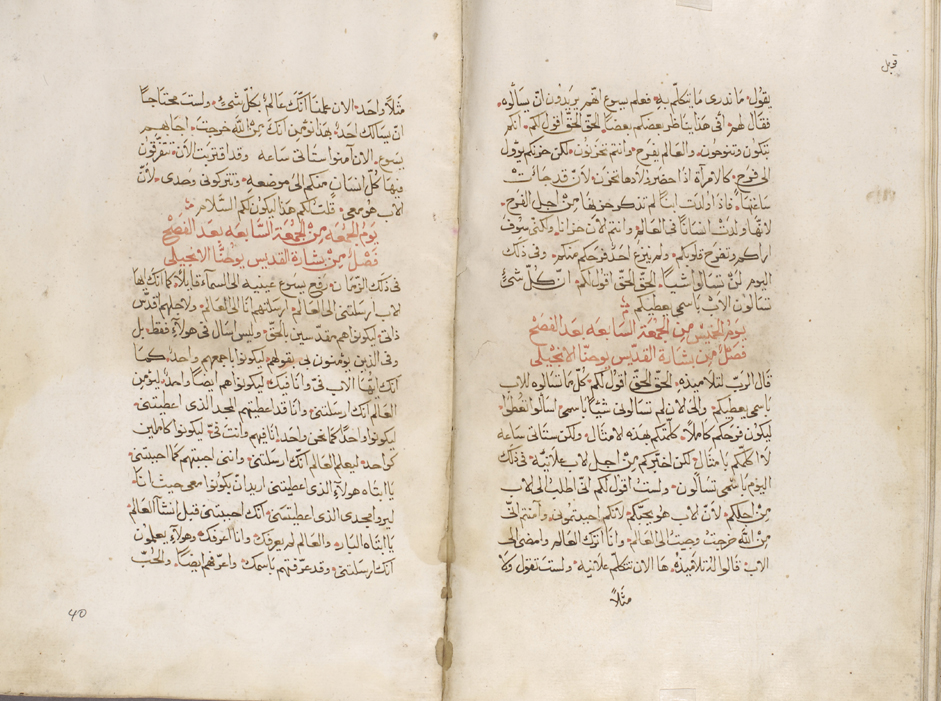 قوبل
يقول٠ ما ندرى ما يتكلم به٠ فعلم يسوع انهم يريدون ان يسألوه٠
فقال لهم٠ افى هذا يناظر بعضكم بعضا٠ الحق الحق اقول لكم٠ انكم
تبكون وتنوحون٠ والعالم يفرح٠ وانتم تحزنون٠ لكن حزنكم يوول
الى فرح٠ كالامرأة اذا حضر ولادها تحزن٠ لان قد جائت
ساعتها٠ فاذا ولدت ابنا لم تذكر حزنها من اجل الفرح٠
لانها ولدت انسانا فى العالم٠ وانتم الان حزانا٠ ولكنى سوف
اراكم وتفرح قلوبكم٠ ولم ينزع احد فرحكم منكم٠ وفى ذلك
اليوم لن تسالوا شيا٠ الحق الحق اقول لكم٠ ان كل شئ
تسالون الاب باسمى يعطيكم
يوم الخميس من الجمعة السابعه بعد الفصح
فصل من بشارة القديس يوحنا الانجيلى
قال الرب لتلاميذه٠ الحق الحق اقول لكم٠ كل ما تسالوه للاب
باسمى يعطيكم٠ والى الان لم تسالونى شيا باسمى٠ اسالوا تعطوا٠
ليكون فرحكم كاملا٠ كلمتكم هذه الامثال٠ ولكن ستاتى ساعه
لا اكلمكم بامثال٠ لكن اخبركم من اجل الاب علانيه٠ فى ذلك
اليوم باسمى تسألون٠ ولست اقول لكم انى اطلب الى الاب
من اجلكم٠ لان الاب هو يحبكم٠ لانكم احببتمونى٠ وآمنتم انى
من الله خرجت٠ وجيت الى العالم٠ وانا اترك العالم وامضى الى
الاب٠ قالوا له تلاميذه٠ ها الان تتكلم علانيه٠ ولست تقول ولا
مثلا
مثلا واحد٠ الان علمنا انك عالم بكل شئ٠ ولست محتاجا
ان يسالك احد٠ بهذا نؤمن انك من الله خرجت٠ اجابهم
يسوع٠ الان آمنوا ستاتى ساعه وقد اقتربت الان٠ تتفرقون
فيها كل انسان منكم الى موضعه٠ وتتركونى وحدى٠ لان
الاب هو معى٠ قلت لكم هذا ليكون لكم السلام
يوم الجمعه من الجمعة السابعه بعد الفصح
فصل من بشارة القديس يوحنا الانجيلى
فى ذلك الزمان٠ رفع يسوع عينيه الى السماء قايلا٠ كما انك ايها
الاب ارسلتنى الى العالم٠ ارسلتهم انا الى العالم٠ ولاجلهم اقدس
ذاتى٠ ليكونوا هم مقدسين بالحق٠ وليس اسال فى هولاء فقط٠ بل
وفى الذين يؤمنون بى بقولهم٠ ليكونوا باجمعهم واحد٠ كما
انك ايها الاب فى وانا فيك٠ ليكونوا هم ايضا واحد٠ ليؤمن
العالم انك ارسلتنى٠ وانا قد اعطيتهم المجد الذى اعطيتنى٠
ليكونوا واحدا كما نحن واحد٠ انا فيهم وانت فى٠ ليكونوا كاملين
كواحد٠ ليعلم العالم انك ارسلتنى٠ وانى احببتهم كما احببتنى٠
يا ابتاه هولاء الذى اعطيتنى اريد ان يكونوا معى حيث انا٠
ليروا مجدى الذى اعطيتنى٠ انك احببتنى قبل انشا العالم٠
يا ابتاه البار٠ والعالم لم يعرفك٠ وانا اعرفك٠ وهولاء يعلمون
انك ارسلتنى٠ وقد عرفتهم باسمك٠ واعرفهم ايضا٠ والحب
40